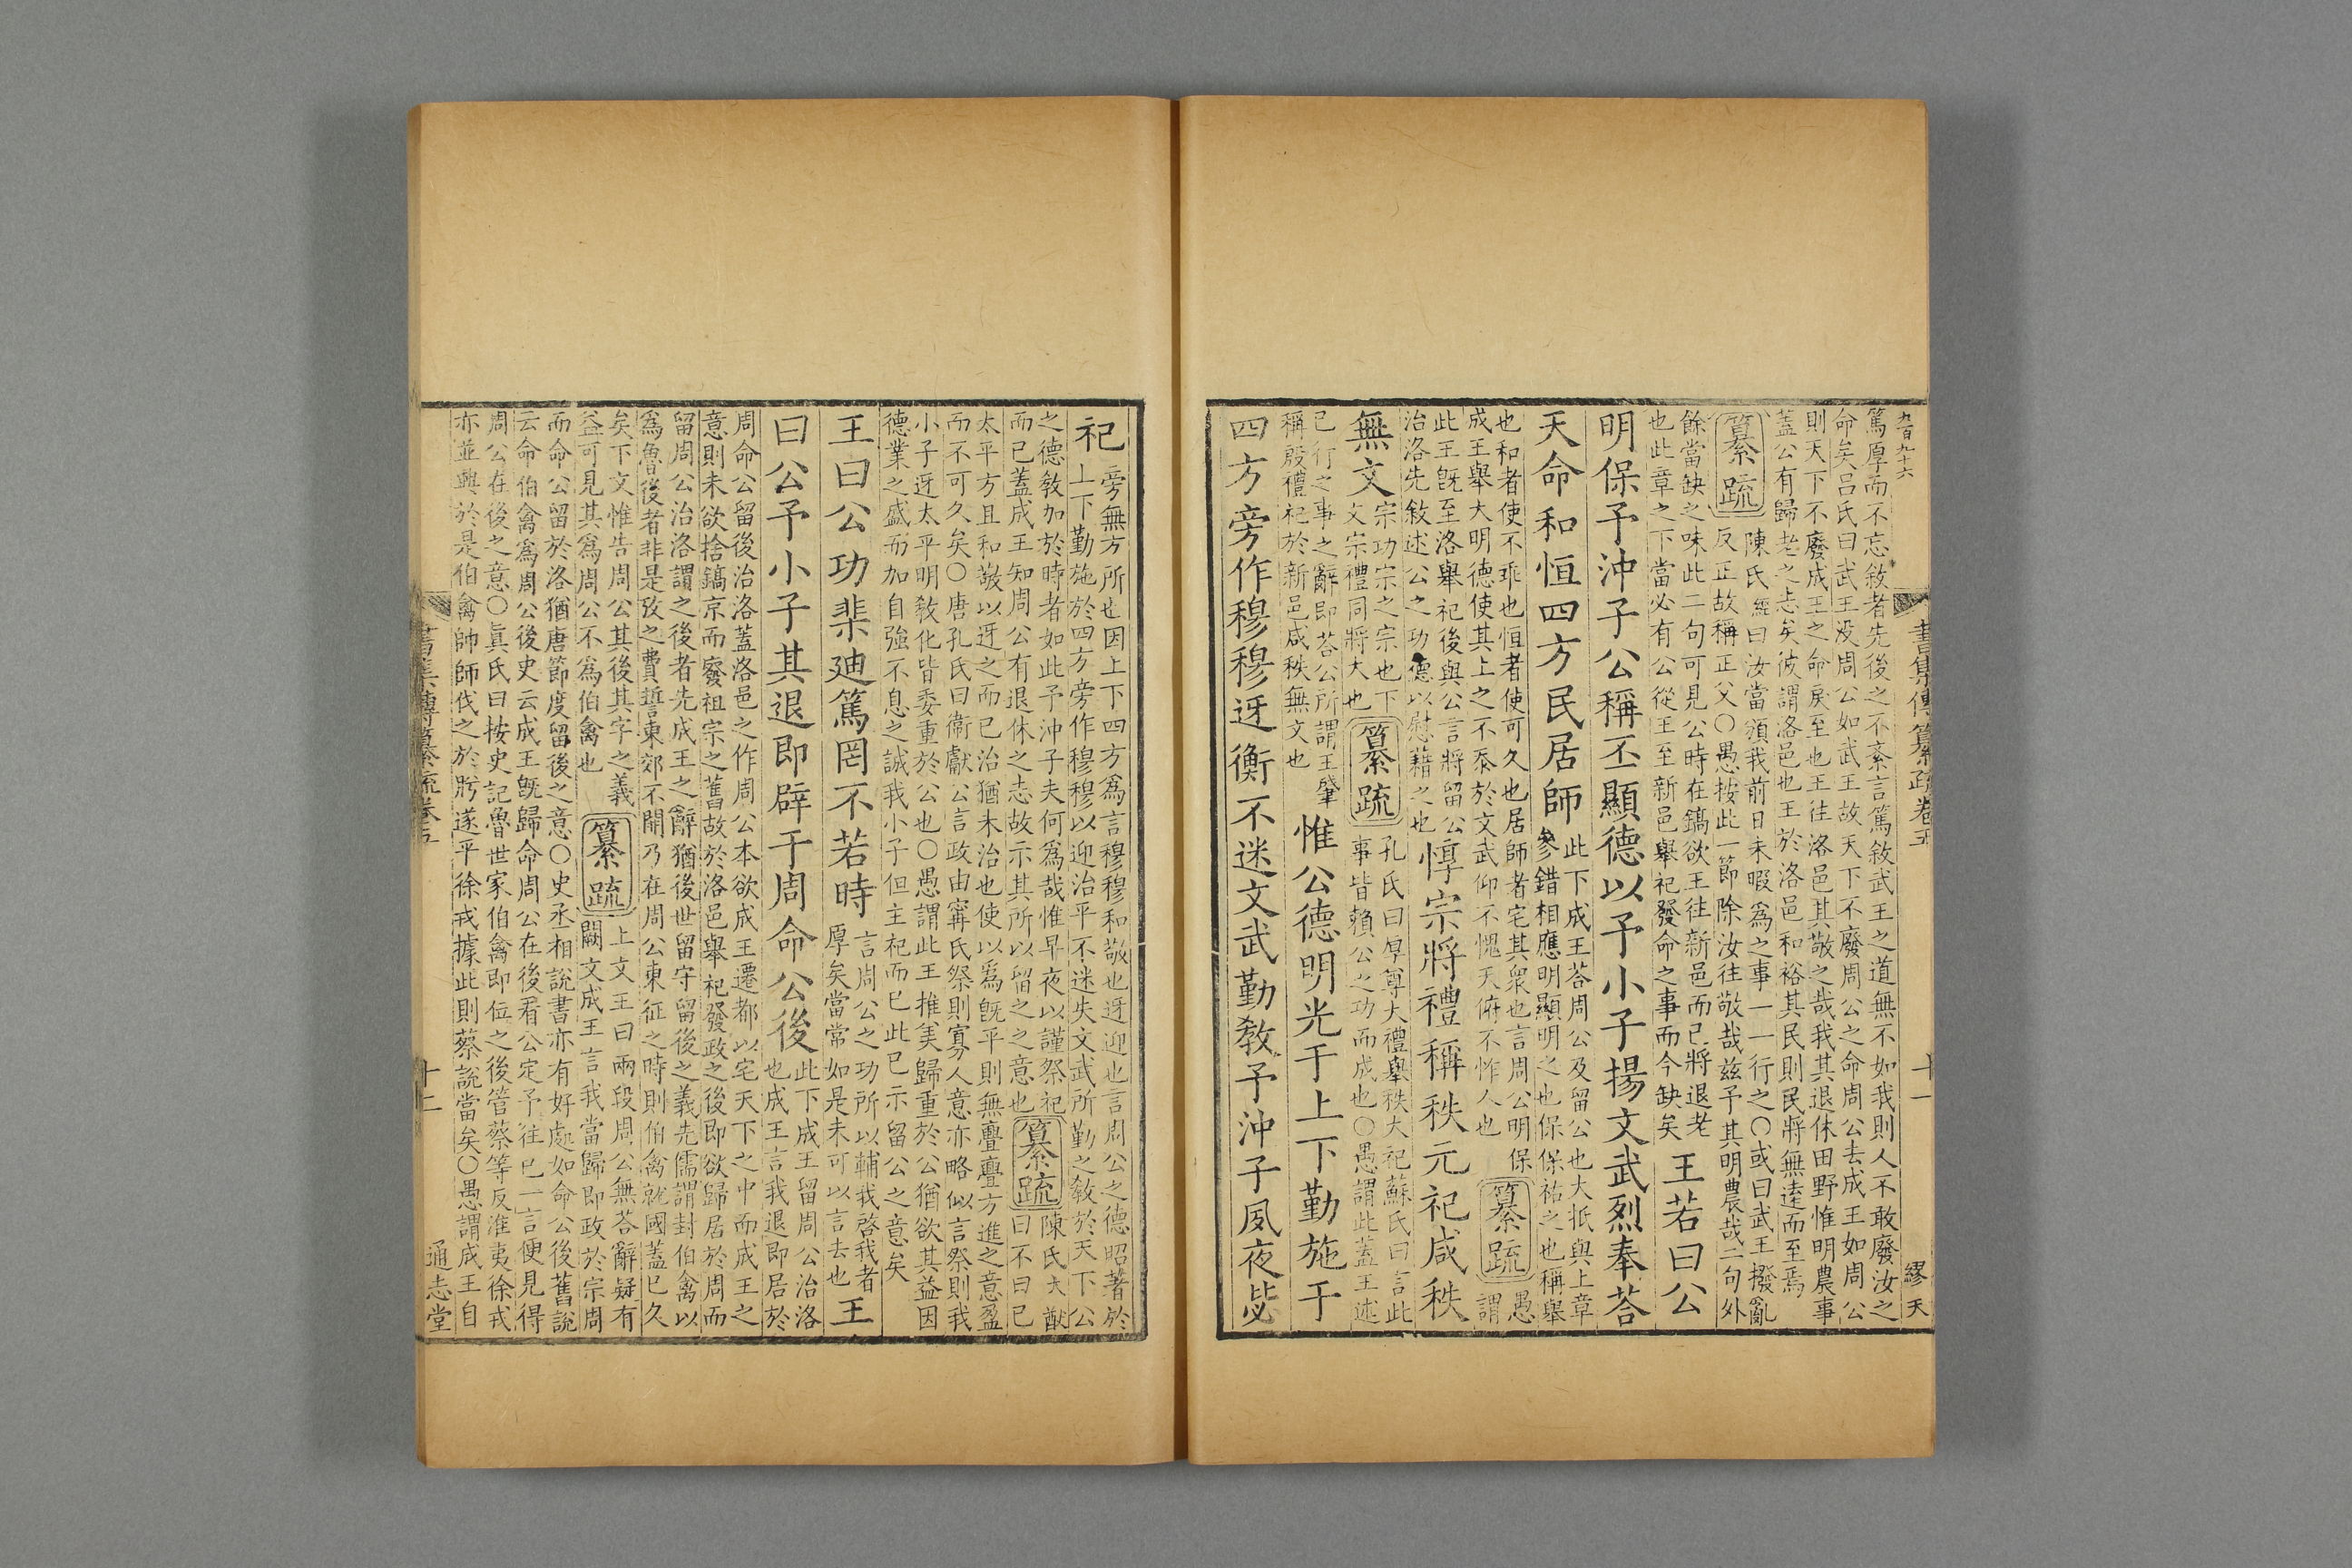 九百九十六
書集傳纂疏卷五
十一
繆天
篤厚而不忘敘者先後之不紊言篤敘武王之道無不如我則人不敢廢汝之
命矣呂氏曰武王没周公如武王故天下不廢周公之命周公去成王如周公
則天下不廢成王之命戾至也王往洛邑其敬之哉我其退休田野惟明農事
蓋公有歸老之志矣彼謂洛邑也王於洛邑和裕其民則民將無逺而至焉
纂疏
陳氏經曰汝當頒我前日未暇爲之事一一行之〇或曰武王撥亂
反正故稱正父〇愚按此一節除汝往敬哉兹予其明農哉二句外
餘當缺之味此二句可見公時在鎬欲王往新邑而已將退老
也此章之下當必有公從王至新邑舉祀發命之事而今缺矣
王若曰公
明保予沖子公稱丕顯德以予小子揚文武烈奉荅
天命和恒四方民居師
此下成王荅周公及留公也大抵與上章
參錯相應明顯明之也保保祐之也稱舉
也和者使不乖也恒者使可久也居師者宅其衆也言周公明保
成王舉大明德使其上之不忝於文武仰不愧天俯不怍人也
纂疏
愚
謂
此王旣至洛舉祀後與公言將留公
治洛先敘述公之功德以慰藉之也
惇宗將禮稱秩元祀咸秩
無文
宗功宗之宗也下
文宗禮同將大也
纂疏
孔氏曰厚尊大禮舉秩大祀蘇氏曰言此
事皆賴公之功而成也〇愚謂此蓋王述
已行之事之辭即荅公所謂王肇
稱殷禮祀於新邑咸秩無文也
惟公德明光于上下勤施于
四方旁作穆穆迓衡不迷文武勤教予沖子夙夜毖
祀
旁無方所也因上下四方爲言穆穆和敬也迓迎也言周公之德昭著於
上下勤施於四方旁作穆穆以迎治平不迷失文武所勤之教於天下公
之德教加於時者如此予沖子夫何爲哉惟早夜以謹祭祀
而已蓋成王知周公有退休之志故示其所以留之之意也
纂疏
陳氏大猷
曰不曰已
太平方且和敬以迓之而已治猶未治也使以爲旣平則無亹亹方進之意盈
而不可久矣〇唐孔氏曰衞獻公言政由甯氏祭則寡人意亦略似言祭則我
小子迓太平明教化皆委重於公也〇愚謂此王推美歸重於公猶欲其益因
德業之盛而加自強不息之誠我小子但主祀而已此已示留公之意矣
王曰公功棐迪篤罔不若時
言周公之功所以輔我啓我者
厚矣當常如是未可以言去也
王
曰公予小子其退即辟于周命公後
此下成王留周公治洛
也成王言我退即居於
周命公留後治洛蓋洛邑之作周公本欲成王遷都以宅天下之中而成王之
意則未欲捨鎬京而廢祖宗之舊故於洛邑舉祀發政之後即欲歸居於周而
留周公治洛謂之後者先成王之辭猶後世留守留後之義先儒謂封伯禽以
爲魯後者非是攷之費誓東郊不開乃在周公東征之時則伯禽就國蓋已久
矣下文惟告周公其後其字之義
益可見其爲周公不爲伯禽也
纂疏
上文王曰兩段周公無荅辭疑有
闕文成王言我當歸即政於宗周
而命公留於洛猶唐節度留後之意〇史丞相說書亦有好處如命公後舊說
云命伯禽爲周公後史云成王旣歸命周公在後看公定予往已一言便見得
周公在後之意〇眞氏曰按史記魯世家伯禽即位之後管蔡等反淮夷徐戎
亦並興於是伯禽帥師伐之於肸遂平徐戎據此則蔡說當矣〇愚謂成王自
書集傳纂疏卷五
十二
通志堂